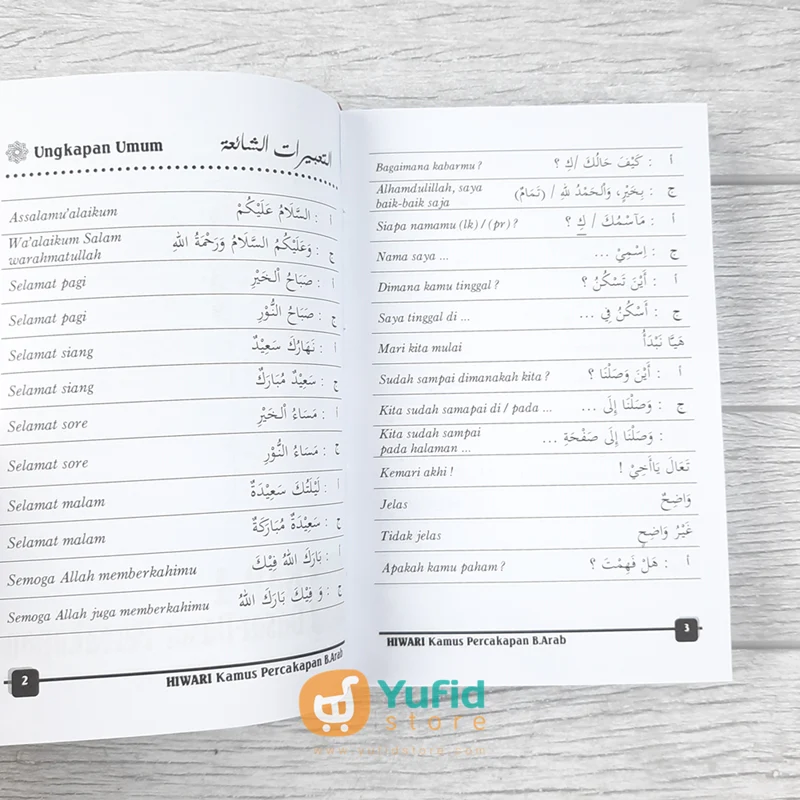 Ungkapan Umum التعبيرات الشائعة
Assalamu'alaikum أ : السَّلَامُ عَلَيْكُمْ
Wa'alaikum Salam warahmatullah ج : وَعَلَيْكُمُ السَّلَامُ وَرَحْمَةُ اللهِ
Selamat pagi أ : صَبَاحُ الْخَيْرِ
Selamat pagi ج : صَبَاحُ النُّوْرِ
Selamat siang أ : نَهَارُكَ سَعِيْدٌ
Selamat siang ج : سَعِيْدٌ مُبَارَكٌ
Selamat sore أ : مَسَاءُ الْخَيْرِ
Selamat sore ج : مَسَاءُ النُّوْرِ
Selamat malam أ : لَيْلَتُكَ سَعِيْدَةٌ
Selamat malam ج : سَعِيْدَةٌ مُبَارَكَةٌ
Semoga Allah memberkahimu أ : بَارَكَ اللهُ فِيْكَ
Semoga Allah juga memberkahimu ج : وَ فِيْكَ بَارَكَ اللهُ
2 HIWARI Kamus Percakapan B.Arab
Bagaimana kabarmu ? أ : كَيْفَ حَالُكَ /كِ ؟
Alhamdulillah, saya baik-baik saja ج : بِخَيْرٍ، وَالْحَمْدُ لِلهِ / (تَمَامٌ)
Siapa namamu (lk) / (pr) ? أ : مَاسْمُكَ / كِ ؟
Nama saya ... ج : اِسْمِيْ ...
Dimana kamu tinggal ? أ : أَيْنَ تَسْكُنُ ؟
Saya tinggal di ... ج : أَسْكُنُ فِي ...
Mari kita mulai هَيَّا نَبْدَأُ
Sudah sampai dimanakah kita ? أ : أَيْنَ وَصَلْنَا ؟
Kita sudah samapai di / pada ... ج : وَصَلْنَا إِلَى ...
Kita sudah sampai pada halaman ... : وَصَلْنَا إِلَى صَفْحَةِ ...
Kemari akhi ! تَعَالَ يَاأَخِيْ !
Jelas وَاضِحٌ
Tidak jelas غَيْرُ وَاضِحٍ
Apakah kamu paham ? أ : هَلْ فَهِمْتَ ؟
HIWARI Kamus Percakapan B.Arab 3
Yufid
store
www.yufidstore.com